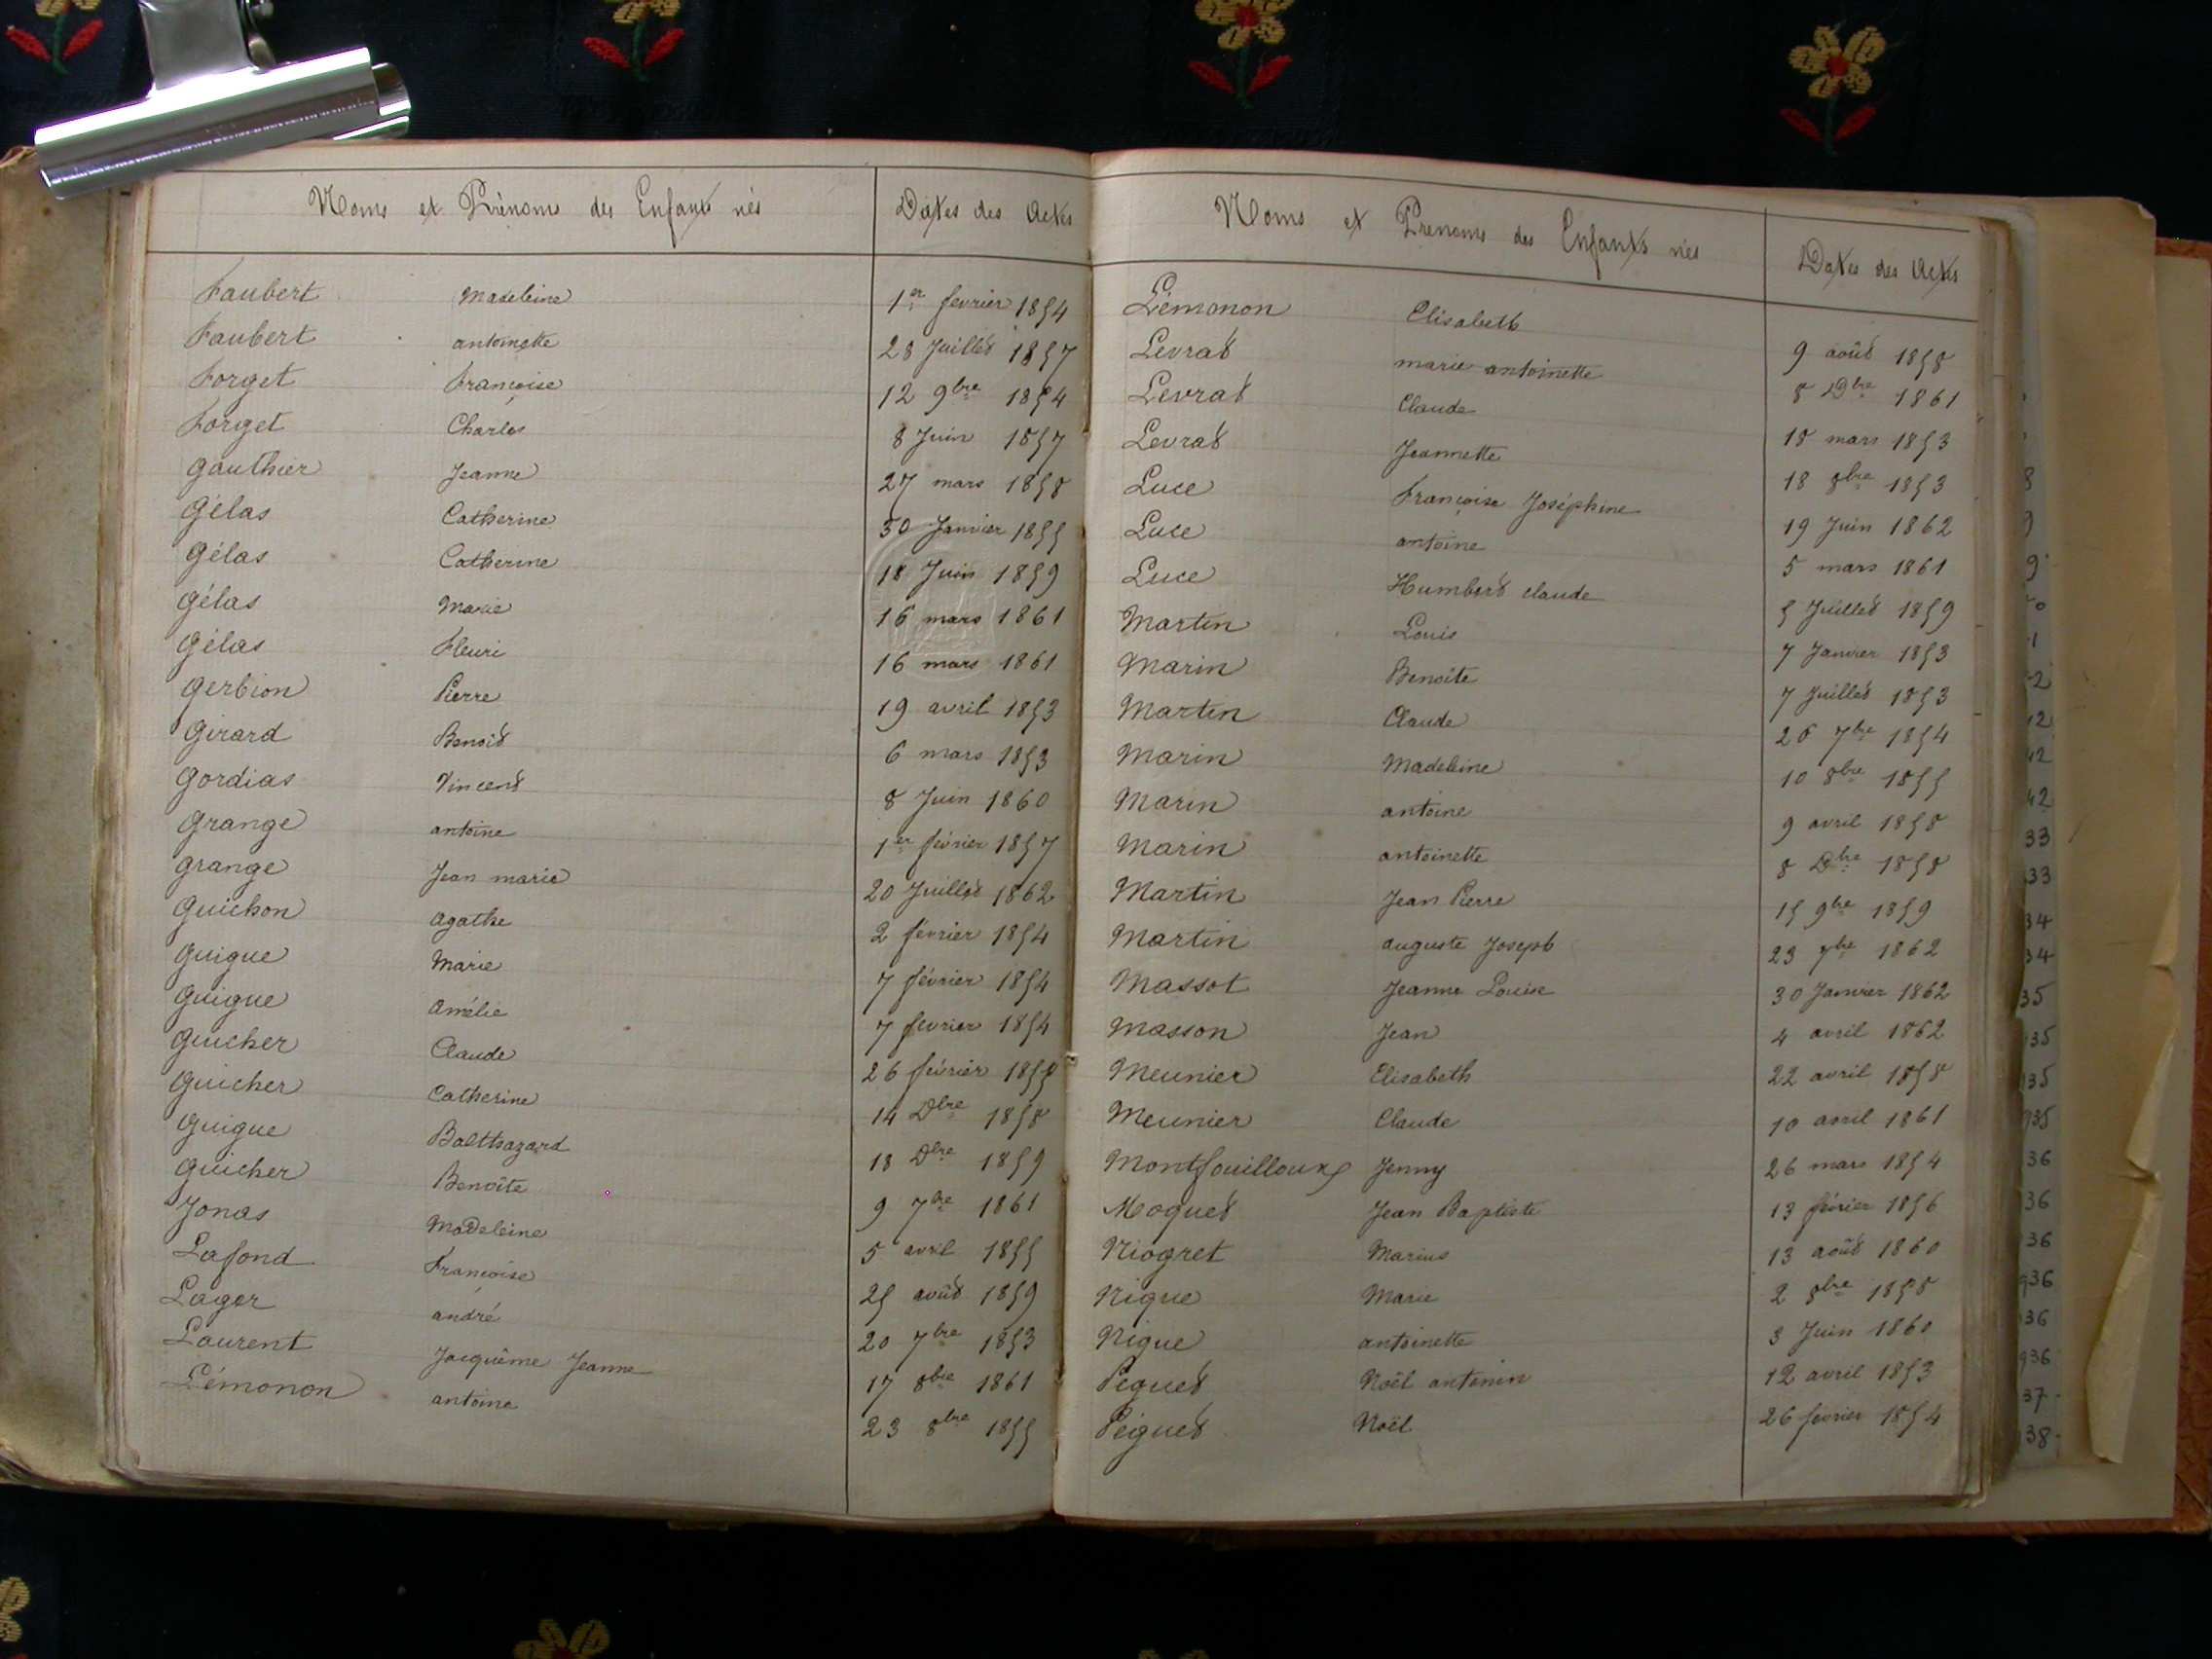 Noms et Prénoms des Enfants nés Dates des Actes
Faubert Madeleine 1er fevrier 1854
Faubert antoinette 28 Juillet 1857
Forget Françoise 12 9bre 1854
Forget Charles 8 Juin 1857
Gauthier Jeanne 27 mars 1858
Gélas Catherine 30 Janvier 1855
Gélas Catherine 18 Juin 1859
Gélas Marie 16 mars 1861
Gélas Fleuri 16 mars 1861
Gerbion Pierre 19 avril 1853
Girard Benoit 6 mars 1853
Gordias Vincent 8 Juin 1860
Grange antoine 1er février 1857
Grange Jean marie 20 Juillet 1862
Guichon agathe 2 fevrier 1854
Guigue Marie 7 février 1854
Guigue amélie 7 fevrier 1854
Guicher Claude 26 février 1858
Guicher Catherine 14 Dbre 1858
Guigue Balthazard 18 Dbre 1859
Guicher Benoîte 9 7bre 1861
Jonas Madeleine 5 avril 1855
Lafond Françoise 25 août 1859
Lager andré 20 7bre 1853
Laurent Jacquême Jeanne 17 8bre 1861
Lémonon antoine 23 8bre 1855
Noms et Prenoms des Enfants nés Dates des Actes
Lémonon Elisabeth 9 août 1858
Levrat marie antoinette 8 Dbre 1861
Levrat Claude 18 mars 1853
Levrat Jeannette 18 8bre 1853
Luce Françoise Joséphine 19 Juin 1862
Luce antoine 5 mars 1861
Luce Humbert claude 5 Juillet 1859
Martin Louis 7 Janvier 1853
Marin Benoîte 7 Juillet 1853
Martin Claude 26 7bre 1854
Marin Madeleine 10 8bre 1855
Marin antoine 9 avril 1858
Marin antoinette 8 Dbre 1858
Martin Jean Pierre 15 9bre 1859
Martin auguste Joseph 23 7bre 1862
Massot Jeanne Louise 30 Janvier 1862
Masson Jean 4 avril 1862
Meunier Elisabeth 22 avril 1858
Meunier Claude 10 avril 1861
Montfouilloux Jenny 26 mars 1854
Moquet Jean Baptiste 13 février 1856
Niogret Marius 13 août 1860
Nigue Marie 2 8bre 1858
Nigue antoinette 3 Juin 1860
Péguet Noël antonin 12 avril 1853
Péguet Noël 26 fevrier 1854